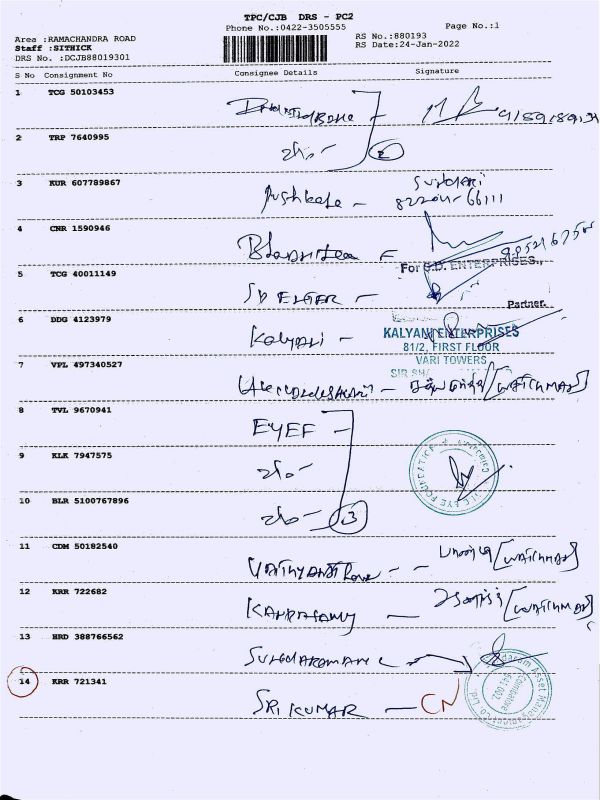 TPC/CJB DRS - PC2
Phone No.:0422-3505555
Page No.:1
Area :RAMACHANDRA ROAD
Staff :SITHICK
DRS No. :DCJB88019301
RS No.:880193
RS Date:24-Jan-2022
S No Consignment No Consignee Details Signature
1 TCG 50103453
2 TRP 7640995
2
3 KUR 607789867
Pushkala -
82204-66111
4 CNR 1590946
For S.D. ENTERPRISES.,
5 TCG 40011149
SD ENTER -
Partner.
6 DDG 4123979
Kalyani -
KALYANI ENTERPRISES
81/2, FIRST FLOOR
VARI TOWERS
7 VPL 497340527
[WATCHMAN]
8 TVL 9670941
EYEF -
9 KLK 7947575
EYE FOUNDATION
10 BLR 5100767896
3
11 CDM 50182540
[WATCHMAN]
12 KRR 722682
KANDASAMY - [WATCHMAN]
13 HRD 388766562
14 KRR 721341
SRI KUMAR - CN
Sundaram Asset Management Co Ltd
Coimbatore
641 002